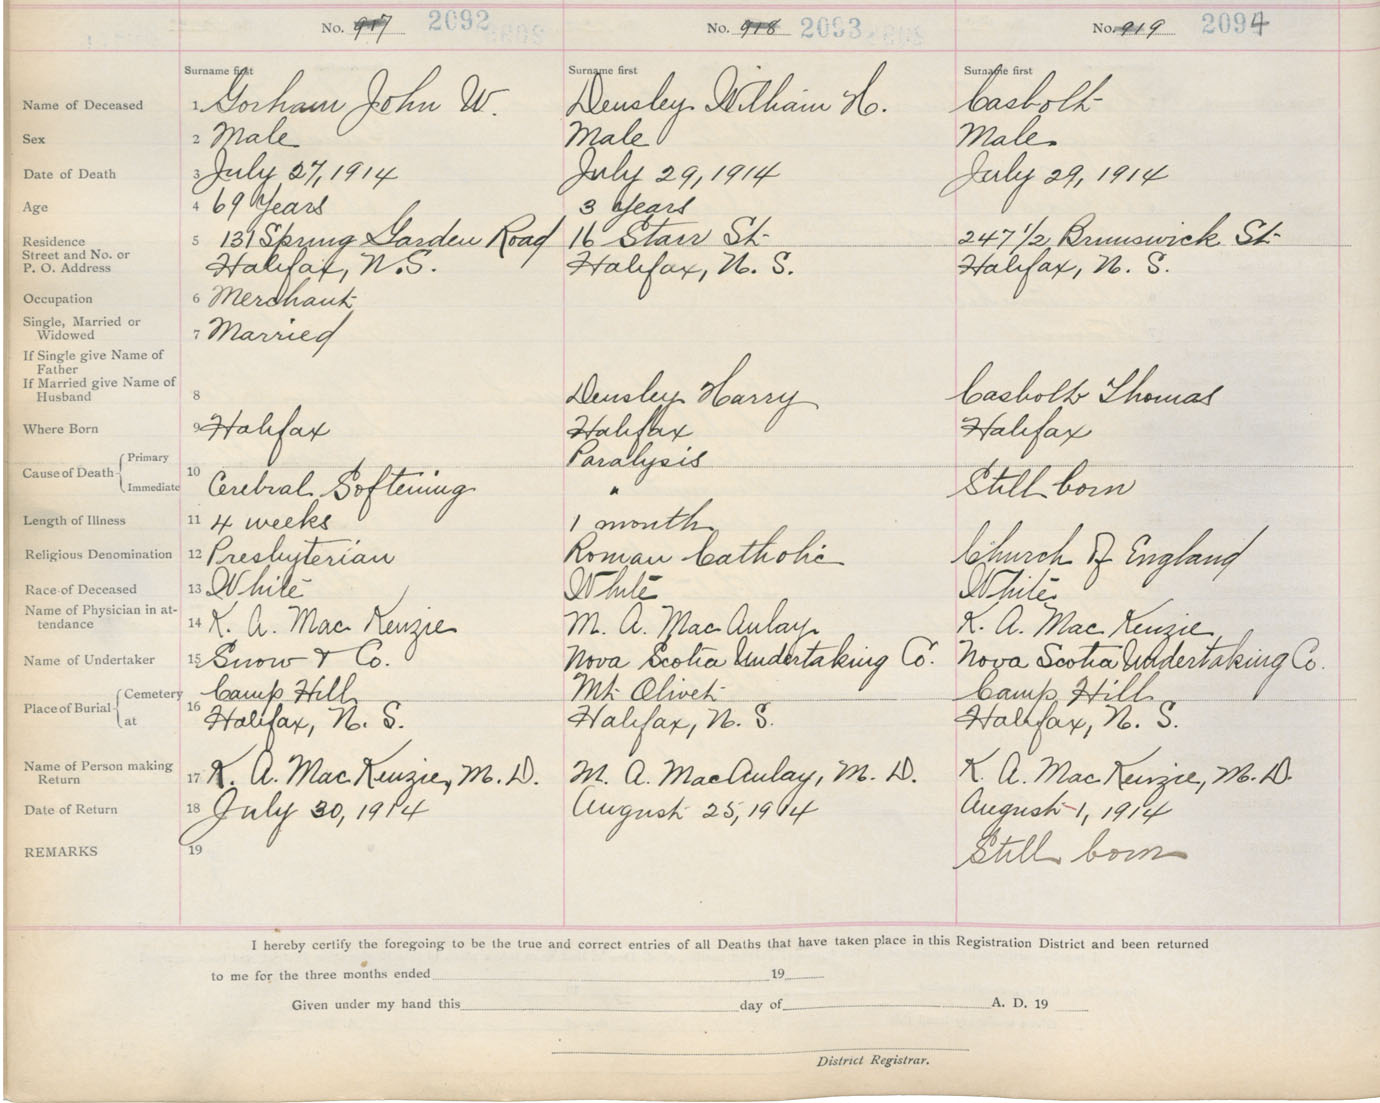 No. 917 2092 No. 918 2093 No. 919 2094
Surname first Surname first Surname first
Name of Deceased 1 Gorham John W. Densley William H. Casbolt
Sex 2 Male Male Male
Date of Death 3 July 27, 1914 July 29, 1914 July 29, 1914
Age 4 69 Years 3 Years
Residence 5 131 Spring Garden Road 16 Starr St 247 1/2 Brunswick St
Street and No. or
P. O. Address Halifax, N.S. Halifax, N. S. Halifax, N. S.
Occupation 6 Merchant
Single, Married or
Widowed 7 Married
If Single give Name of
Father
If Married give Name of
Husband 8 Densley Harry Casbolt Thomas
Where Born 9 Halifax Halifax Halifax
Cause of Death Primary Paralysis
10 Immediate Cerebral Softening " Still born
Length of Illness 11 4 weeks 1 month
Religious Denomination 12 Presbyterian Roman Catholic Church Of England
Race of Deceased 13 White White White
Name of Physician in at-
tendance 14 K. A. Mac Kenzie M. A. MacAulay K. A. Mac Kenzie
Name of Undertaker 15 Snow & Co. Nova Scotia Undertaking Co. Nova Scotia Undertaking Co.
Place of Burial Cemetery Camp Hill Mt Olivet Camp Hill
16 at Halifax, N. S. Halifax, N. S. Halifax, N. S.
Name of Person making
Return 17 K. A. Mac Kenzie, M. D. M. A. MacAulay, M. D. K. A. Mac Kenzie, M. D.
Date of Return 18 July 30, 1914 August 25, 1914 August 1, 1914
REMARKS 19 Still born
I hereby certify the foregoing to be the true and correct entries of all Deaths that have taken place in this Registration District and been returned
to me for the three months ended 19
Given under my hand this day of A. D. 19
District Registrar.